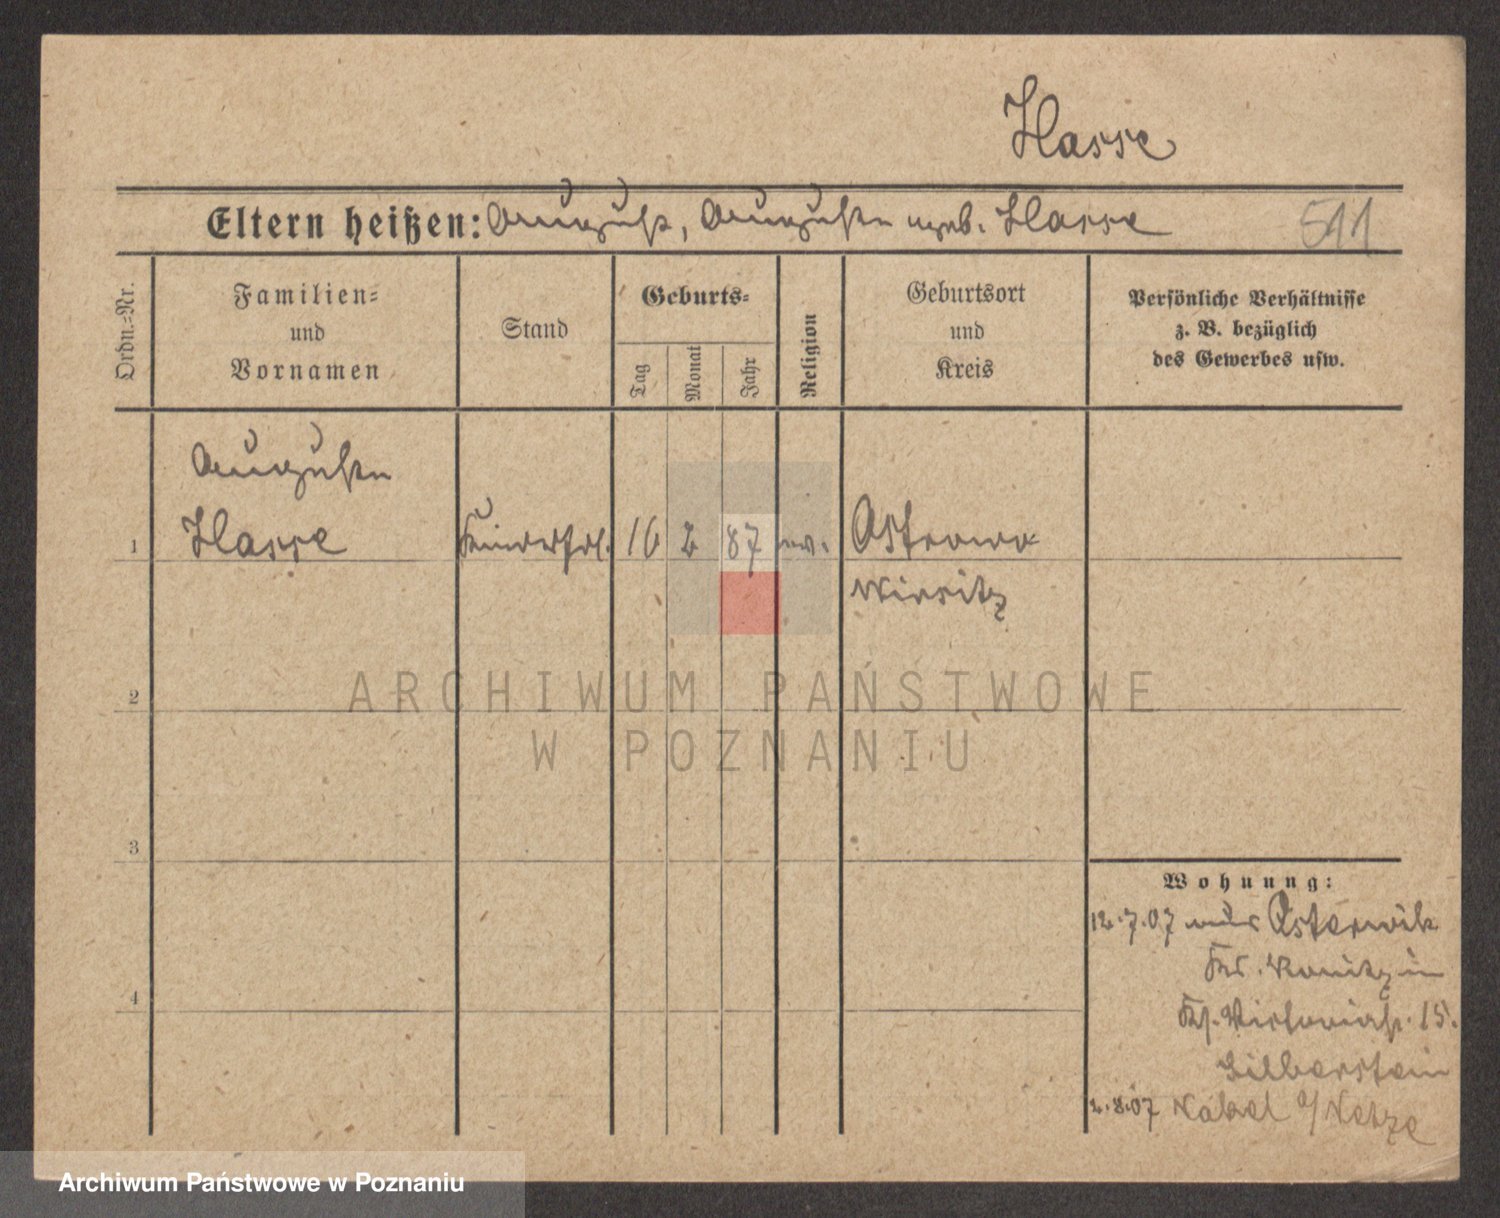 Hasse
Eltern heißen: August, Auguste geb. Hasse 511
Ordn.-Nr.
Familien-
und
Vornamen
Stand
Geburts-
Tag
Monat
Jahr
Religion
Geburtsort
und
Kreis
Persönliche Verhältnisse
z. B. bezüglich
des Gewerbes usw.
Auguste
1 Hasse 16 2 87 ev. Ostrowo
Wirsitz
2
ARCHIWUM PAŃSTWOWE
W POZNANIU
3
Wohnung:
12.7.07 aus Osterwik
Kr. Konitz in
Victoriastr. 15.
Silberstein
4
2.8.07 Nakel a/Netze
Archiwum Państwowe w Poznaniu